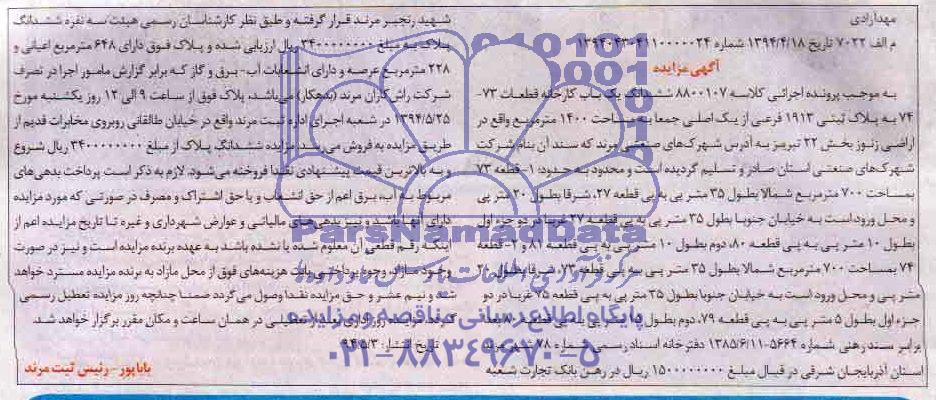 مهدآزادی
م الف ۷۰۲۲ تاریخ ۱۳۹۴/۴/۱۸ شماره ۱۳۹۴۰۴۳۰۴۱۱۰۰۰۰۰۲۴
آگهی مزایده
به موجب پرونده اجرائی کلاسه ۸۸۰۰۱۰۷ ششدانگ یک باب کارخانه قطعات ۷۳-
۷۴ به پلاک ثبتی ۱۹۱۳ فرعی از یک اصلی جمعا به مساحت ۱۴۰۰ مترمربع واقع در
اراضی زنوز بخش ۲۲ تبریز به آدرس شهرک‌های صنعتی مرند که سند آن بنام شرکت
شهرک‌های صنعتی استان صادر و تسلیم گردیده است و محدود به حدود: ۱- قطعه ۷۳
بمساحت ۷۰۰ مترمربع شمالا بطول ۳۵ متر پی به پی قطعه ۲۷، شرقا بطول ۲۰ متر پی
و محل ورود است به خیابان جنوبا بطول ۳۵ متر پی به پی قطعه ۲۷ غربا در دو جزء اول
بطول ۱۰ متر پی به پی قطعه ۸۰، دوم بطول ۱۰ متر پی به پی قطعه ۸۱ و ۲- قطعه
۷۴ بمساحت ۷۰۰ مترمربع شمالا بطول ۳۵ متر پی به پی قطعه ۷۳، شرقا بطول ۲۰
متر پی و محل ورود است به خیابان جنوبا بطول ۳۵ متر پی به پی قطعه ۷۵ غربا در دو
جزء اول بطول ۵ متر پی به پی قطعه ۷۹، دوم بطول ۱۵ متر پی به پی قطعه ۸۰ بعد
برابر سند رهنی شماره ۵۶۶۴-۱۳۸۵/۶/۱۱ دفترخانه اسناد رسمی شماره ۷۸ شهر مرند
استان آذربایجان شرقی در قبال مبلغ ۱۵۰۰۰۰۰۰۰۰ ریال در رهن بانک تجارت شعبه
شهید رنجبر مرند قرار گرفته و طبق نظر کارشناسان رسمی هیئت سه نفره ششدانگ
پلاک به مبلغ ۳۴۰۰۰۰۰۰۰۰ ریال ارزیابی شده و پلاک فوق دارای ۶۴۸ مترمربع اعیانی و
۲۲۸ مترمربع عرصه و دارای انشعابات آب- برق و گاز که برابر گزارش مامور اجرا در تصرف
شرکت راش کاران مرند (بدهکار) می‌باشد، پلاک فوق از ساعت ۹ الی ۱۲ روز یکشنبه مورخ
۱۳۹۴/۵/۲۵ در شعبه اجرای اداره ثبت مرند واقع در خیابان طالقانی روبروی مخابرات قدیم از
طریق مزایده به فروش می‌رسد. مزایده ششدانگ پلاک از مبلغ ۳۴۰۰۰۰۰۰۰۰ ریال شروع
و به بالاترین قیمت پیشنهادی نقدا فروخته می‌شود. لازم به ذکر است پرداخت بدهی‌های
مربوط به آب، برق اعم از حق انشعاب و یا حق اشتراک و مصرف در صورتی که مورد مزایده
دارای آنها باشد و نیز بدهی‌های مالیاتی و عوارض شهرداری و غیره تا تاریخ مزایده اعم از
اینکه رقم قطعی آن معلوم شده یا نشده باشد به عهده برنده مزایده است و نیز در صورت
وجود مازاد، وجوه پرداختی بابت هزینه‌های فوق از محل مازاد به برنده مزایده مسترد خواهد
شد و نیم عشر و حق مزایده نقدا وصول می‌گردد ضمنا چنانچه روز مزایده تعطیل رسمی
گردد، مزایده روز اداری بعد از تعطیلی در همان ساعت و مکان مقرر برگزار خواهد شد.
تاریخ انتشار: ۹۴/۵/۳
باباپور - رئیس ثبت مرند
ParsNamadData
پایگاه اطلاع رسانی مناقصه و مزایده
۰۲۱-۸۸۳۴۹۶۷۰-۵